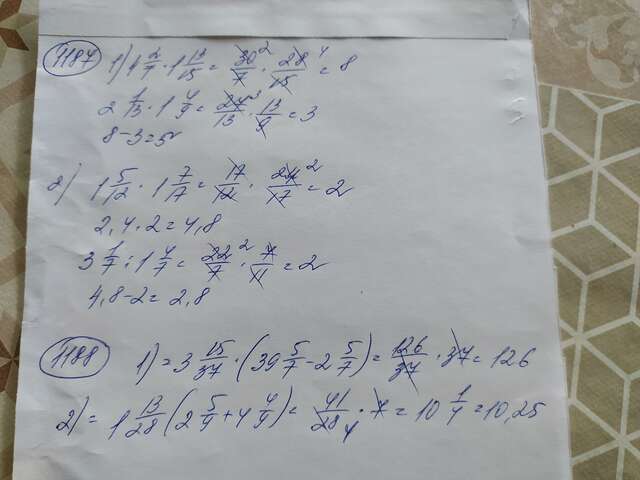 1187 1) 4 2/7 · 1 13/15 = 30/7 2 · 28/15 4 = 8
2 1/13 · 1 4/9 = 27/13 3 · 13/9 = 3
8-3=5
2) 1 5/12 · 1 7/17 = 17/12 · 24/17 2 = 2
2,4·2=4,8
3 1/7 : 1 4/7 = 22/7 2 · 7/11 = 2
4,8-2=2,8
1188 1) = 3 15/37 · (39 5/7 - 2 5/7) = 126/37 · 37 = 126
2) = 1 13/28 (2 5/9 + 4 4/9) = 41/28 4 · 7 = 10 1/4 = 10,25